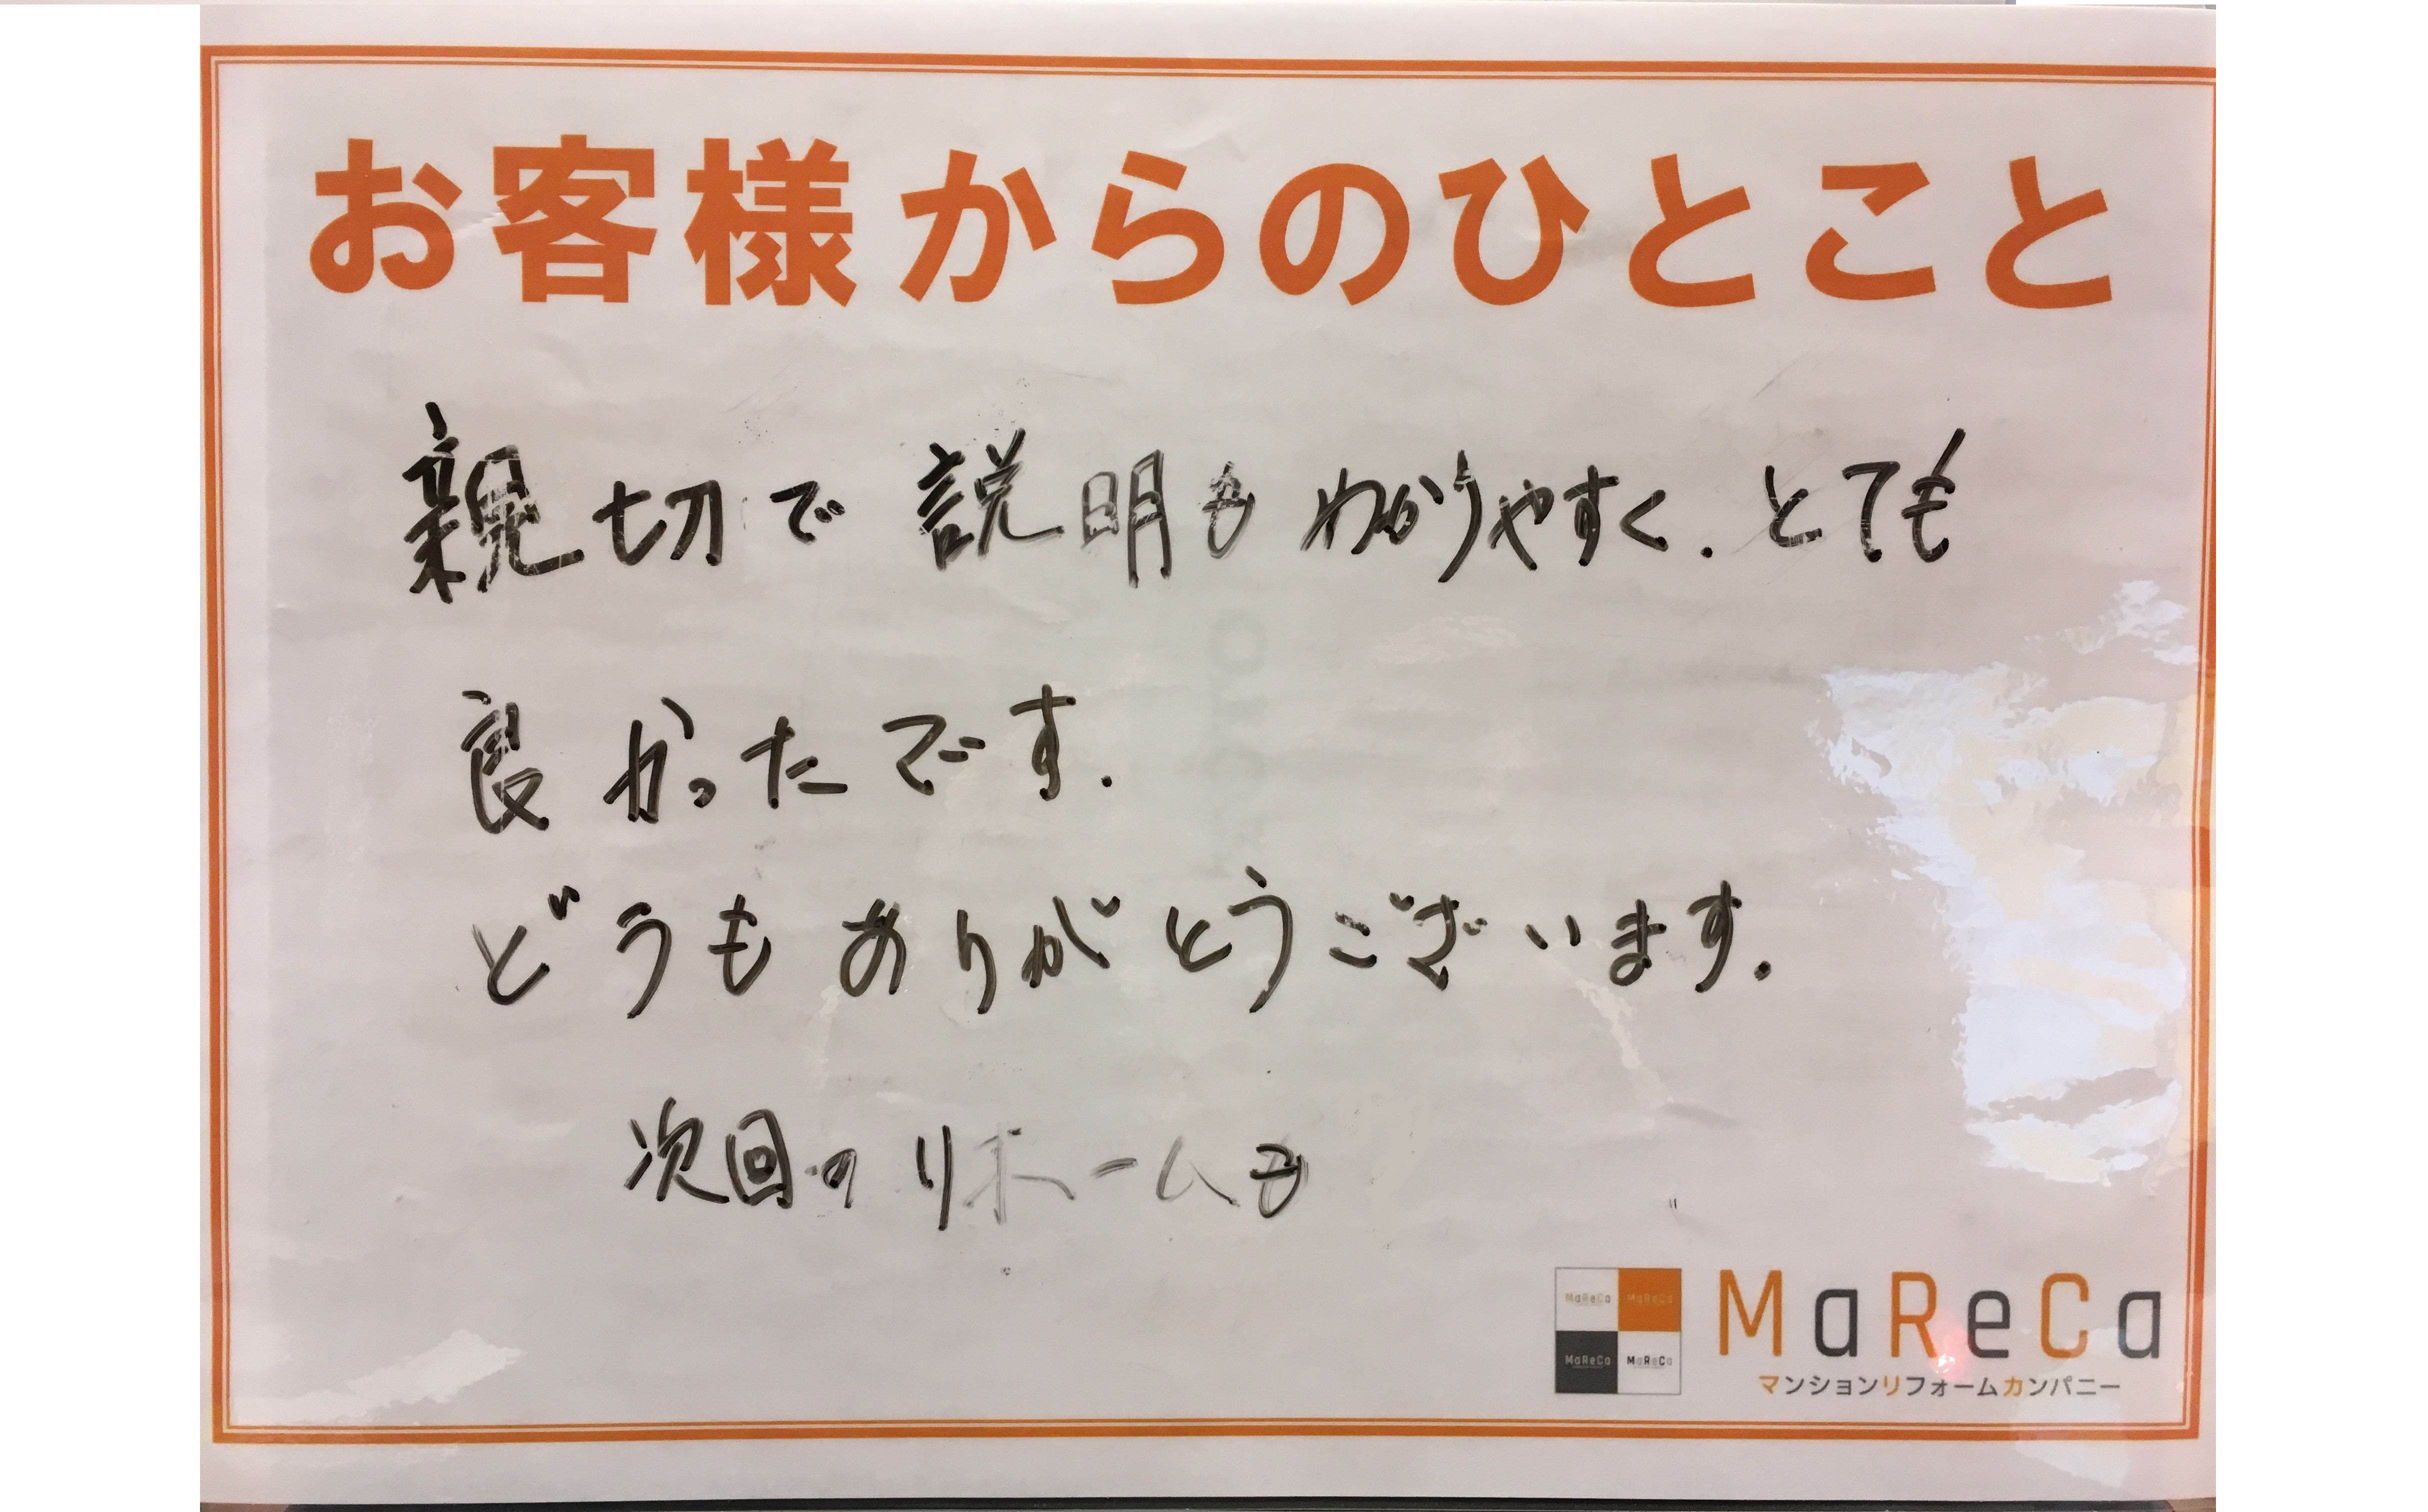 お客様からのひとこと
親切で説明もわかりやすく.とても
良かったです.
どうもありがとうございます.
次回のリホームも
MaReCa MaReCa
MaReCa MaReCa
MaReCa
マンションリフォームカンパニー